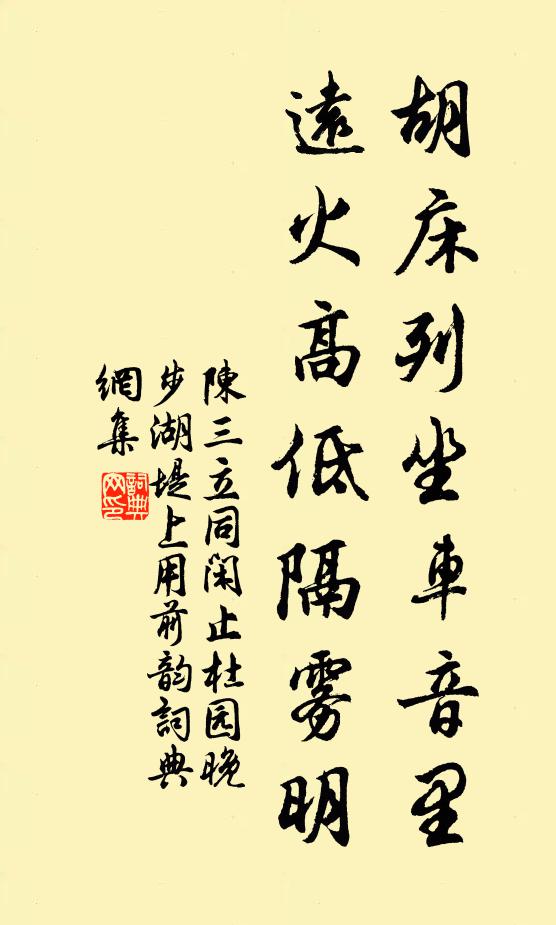 胡床列坐車音里
遠火高低隔雾明
陳三立同閑止杜园晚
步湖堤上用前韵詞典
網集
詞典
网印